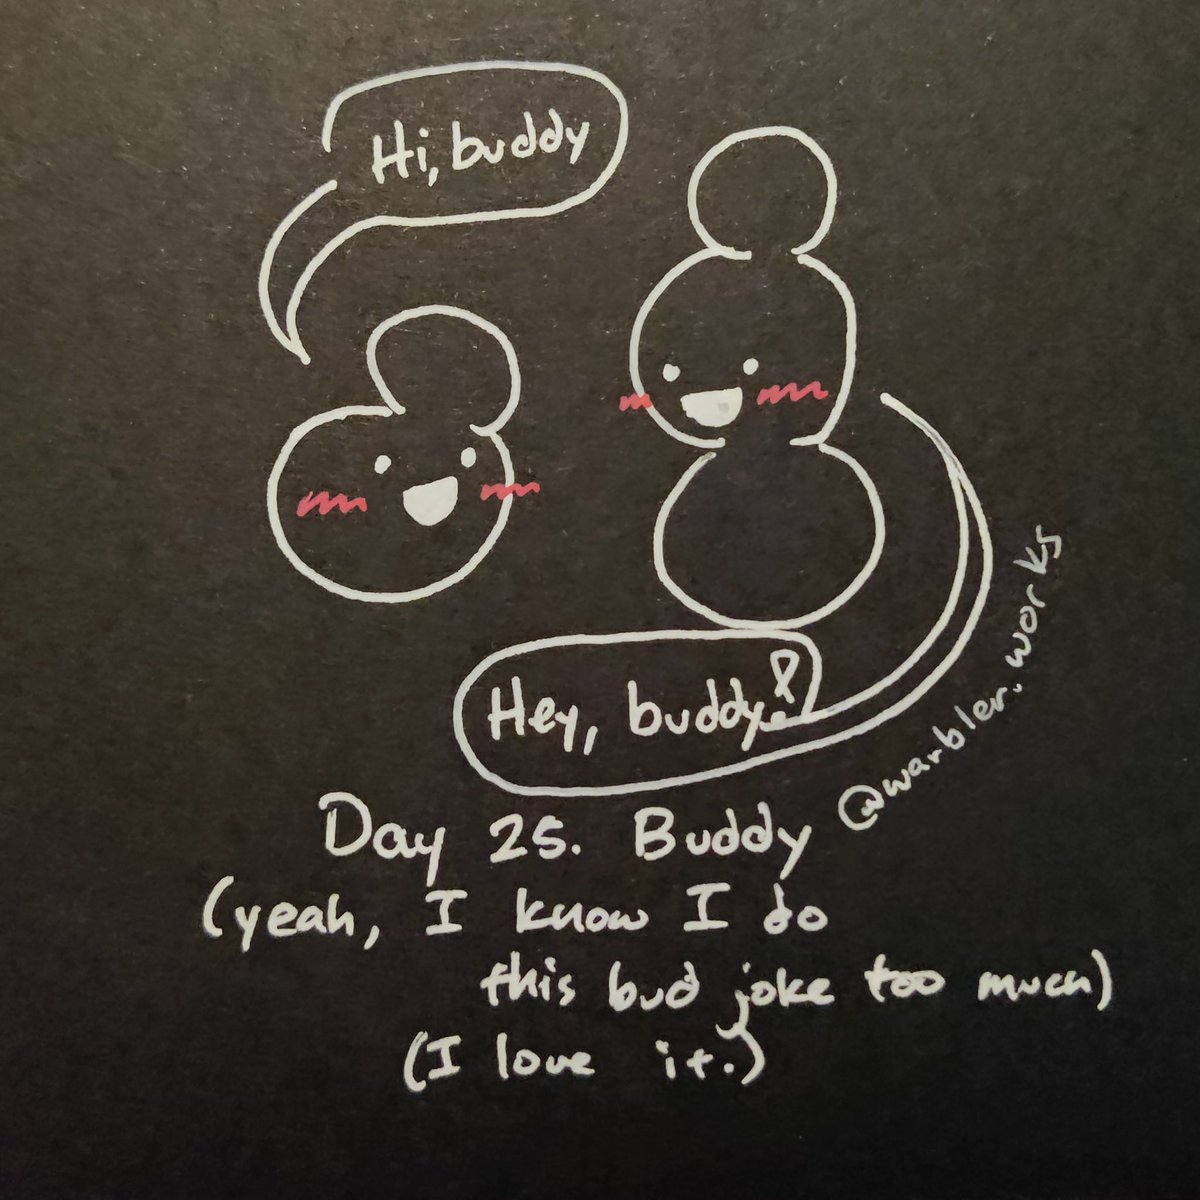 Hi, buddy
Hey, buddy!
@warbler.works
Day 25. Buddy
(yeah, I know I do
this bud joke too much)
(I love it.)